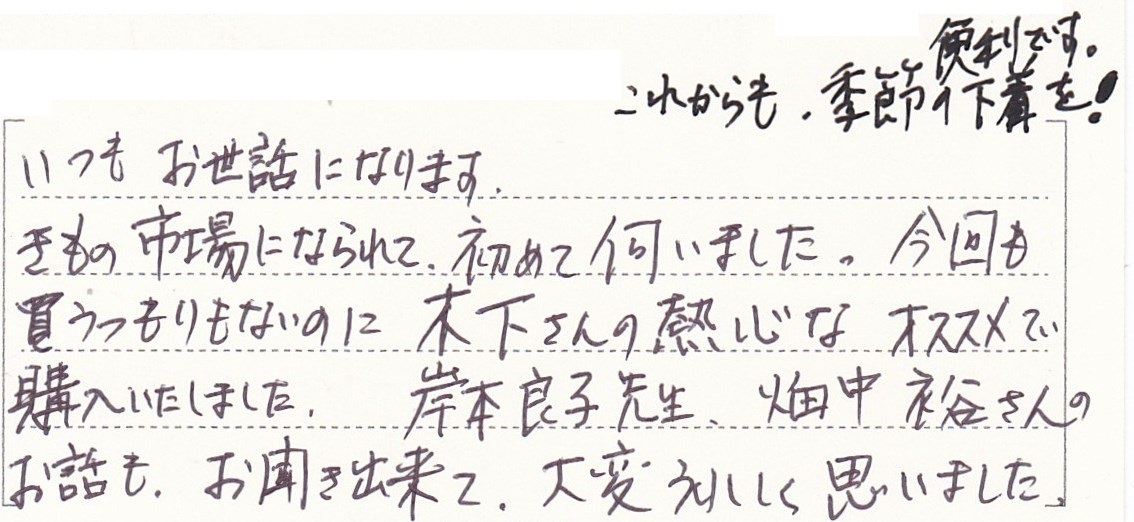 便利です。
これからも、季節の下着を!
いつも お世話になります.
きもの市場になられて、初めて伺いました。今回も
買うつもりもないのに 木下さんの熱心な オススメで
購入いたしました. 岸本良子先生、畑中 裕さんの
お話も、お聞き出来て、大変うれしく思いました。